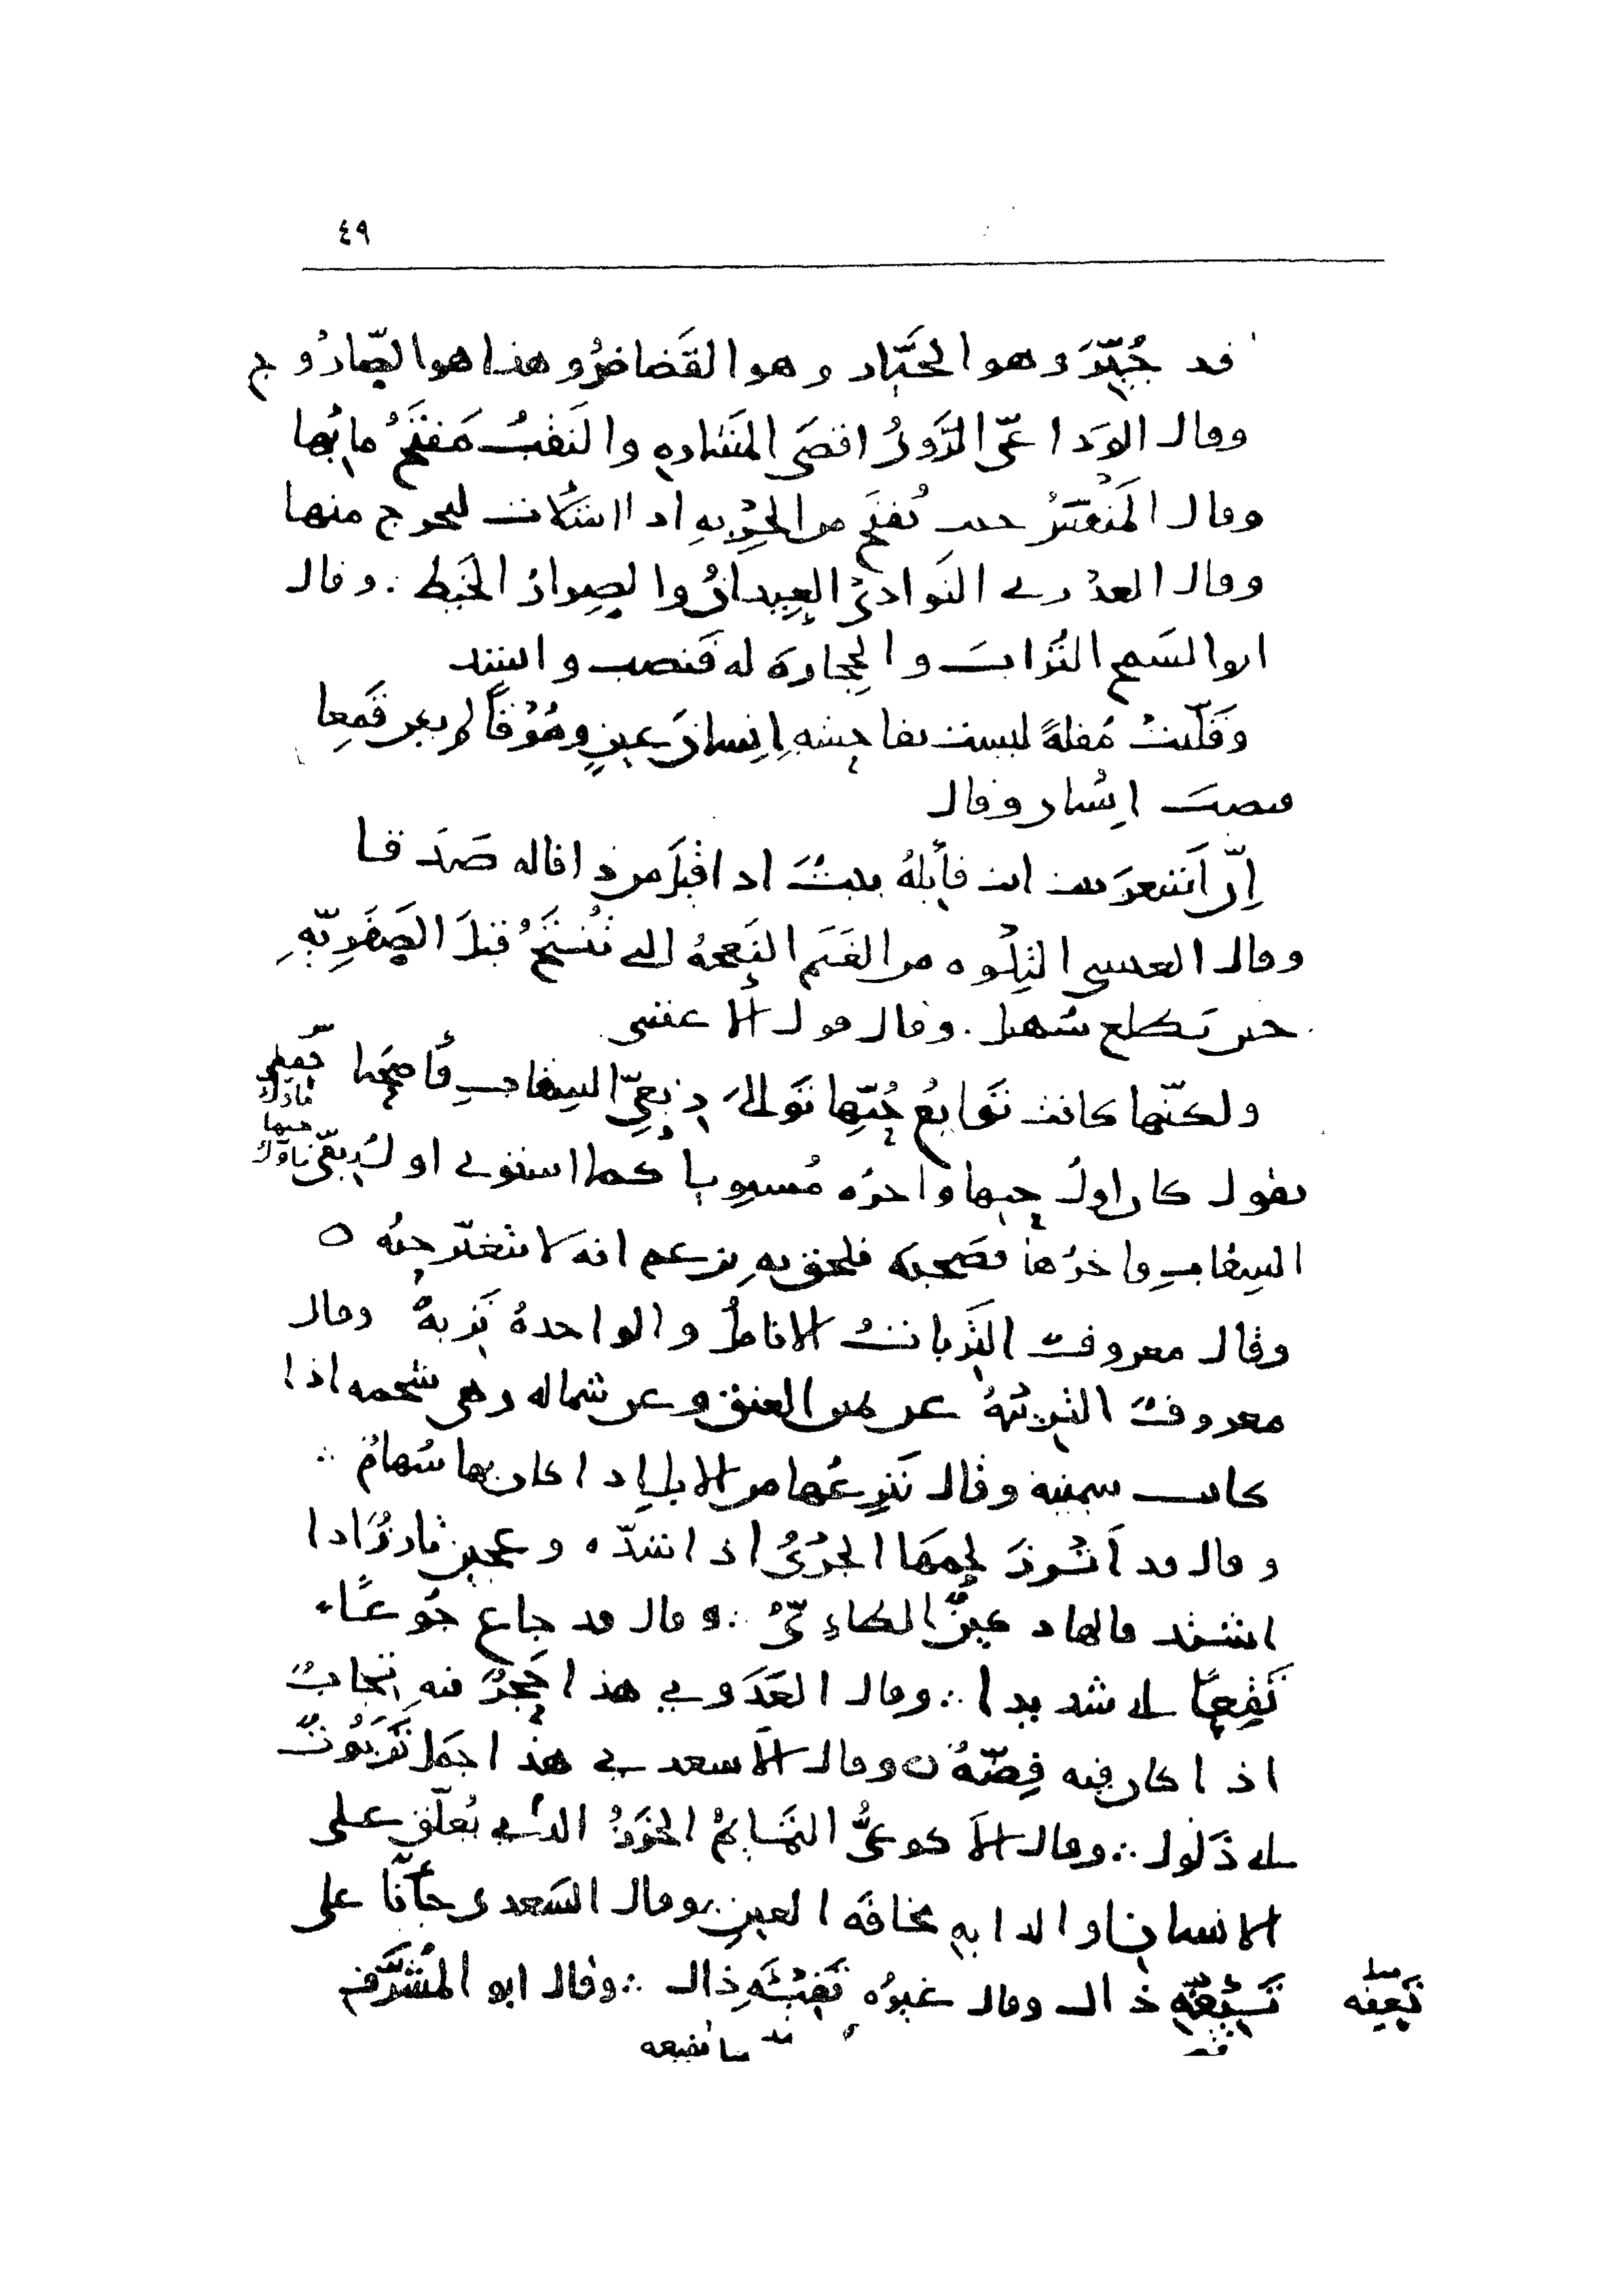 ٤٩
قد جُيِّرَ وهو الجَيَّار وهو القَضَاضُ وهذا هو الصَّارُوج
وقال الوَداعيّ التَّوُ اقصَى المَشَاره والنَقبُ مَفتَحُ مائها
وقال المَنْعَتَرُ حيث تُفتَح من الجِرْبهِ اذا اشتكات ليخرج منها
وقال العذري النَوادى العِيدانُ والصِوارُ الخَبط ∴ وقال
ابو السَمح التُرابَ والحِجارة له فنصب وانشد
وَقَلّبتْ مُقلةً ليست بفاحِشهٍ اِنسانَ عينٍ ومُوْقًا لم يكن قَمِعا
فنصبَ اِنسان وقال
اِنّ اَشعرَ بيت انت قائلهُ بيتٌ اذا قيلَ من ذا قاله صَدَقا
وقال العبسي التِلْوه من الغَنَم النَعجهُ التي تُنتَجُ قبلَ الصَفَرِيّهِ
حين تطلع سُهيل. وقال قول الاعشى
ولكنّها كانت تَوابعُ حُبّها تَوالىَ رِبْعِيّ السِقابِ فأصحَبا
يقول كان اولُ حبها واخرُه كما استوى اولُ رِبعيّ
السِقابِ واخرُها فصَحبه فلحق به يزعم انه لا يتغيّر حبُّه ○
وقال معروف التَرِبَاتُ الاناملُ والواحدهُ تَرِبهٌ وقال
معروف عن يمين العنق وعن شماله وهى شحمه اذا
كانت سمينة وقال نَنزِعُها من الابل اذا كان بها سُهامٌ ∴
وقال قد اَتْرزَ لحمَها الجَرْيُ اذا شدّه وعجين تارزٌ اذا
اشتد قالها د الطاءِيّ ∴ وقال قد جاع جُوعًا
لى شديدا ∴ وقال العَدَوي هذا حَجَرٌ فيه تِجابٌ
اذا كان فيه فِضّهٌ ○ وقال الاَسعدي هذا جمل تَرَبُوتٌ
لى ذَلول ∴ وقال الاَكوعيُّ التَمَايمُ الخَرَزُ الذي يُعلّق على
الانسان او الدابه مخافَه العين ∴ وقال السَعدى جأنا على
تَئِفّهِ ذاك وقال غيرُه تَفِئَهِ ذاك ∴ وقال ابو المُشَرَّف